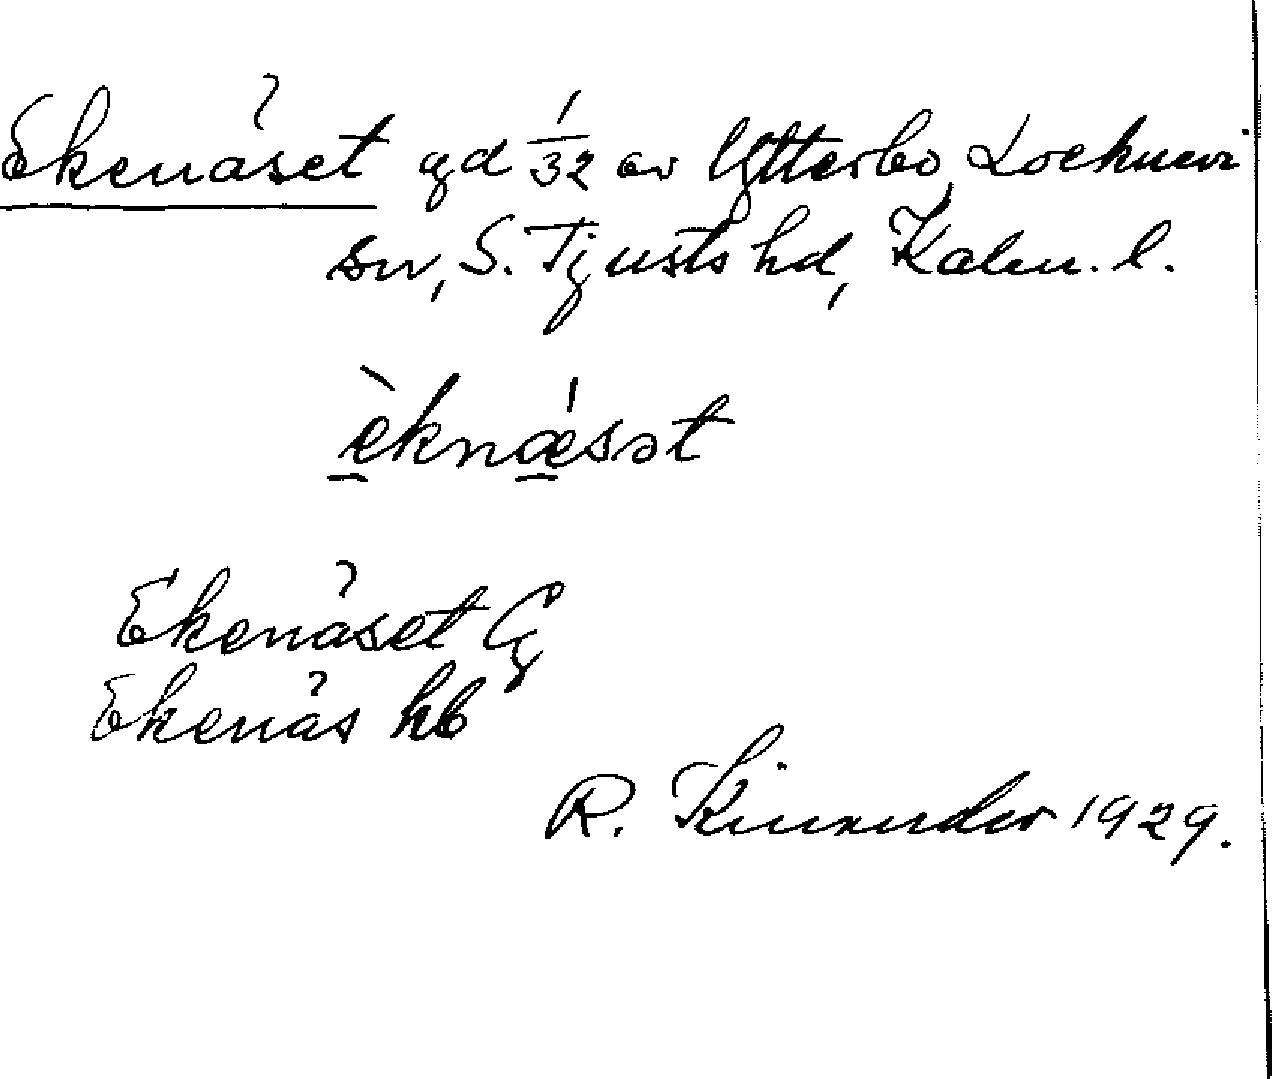 Ekenäset gd 1/32 av Ytterbo, Lockнevi
sn, S. Tjusts hd, Kalm. l.
èknǽsət
Ekenäset Cg
Ekenäs hb
R. Kinander 1929.